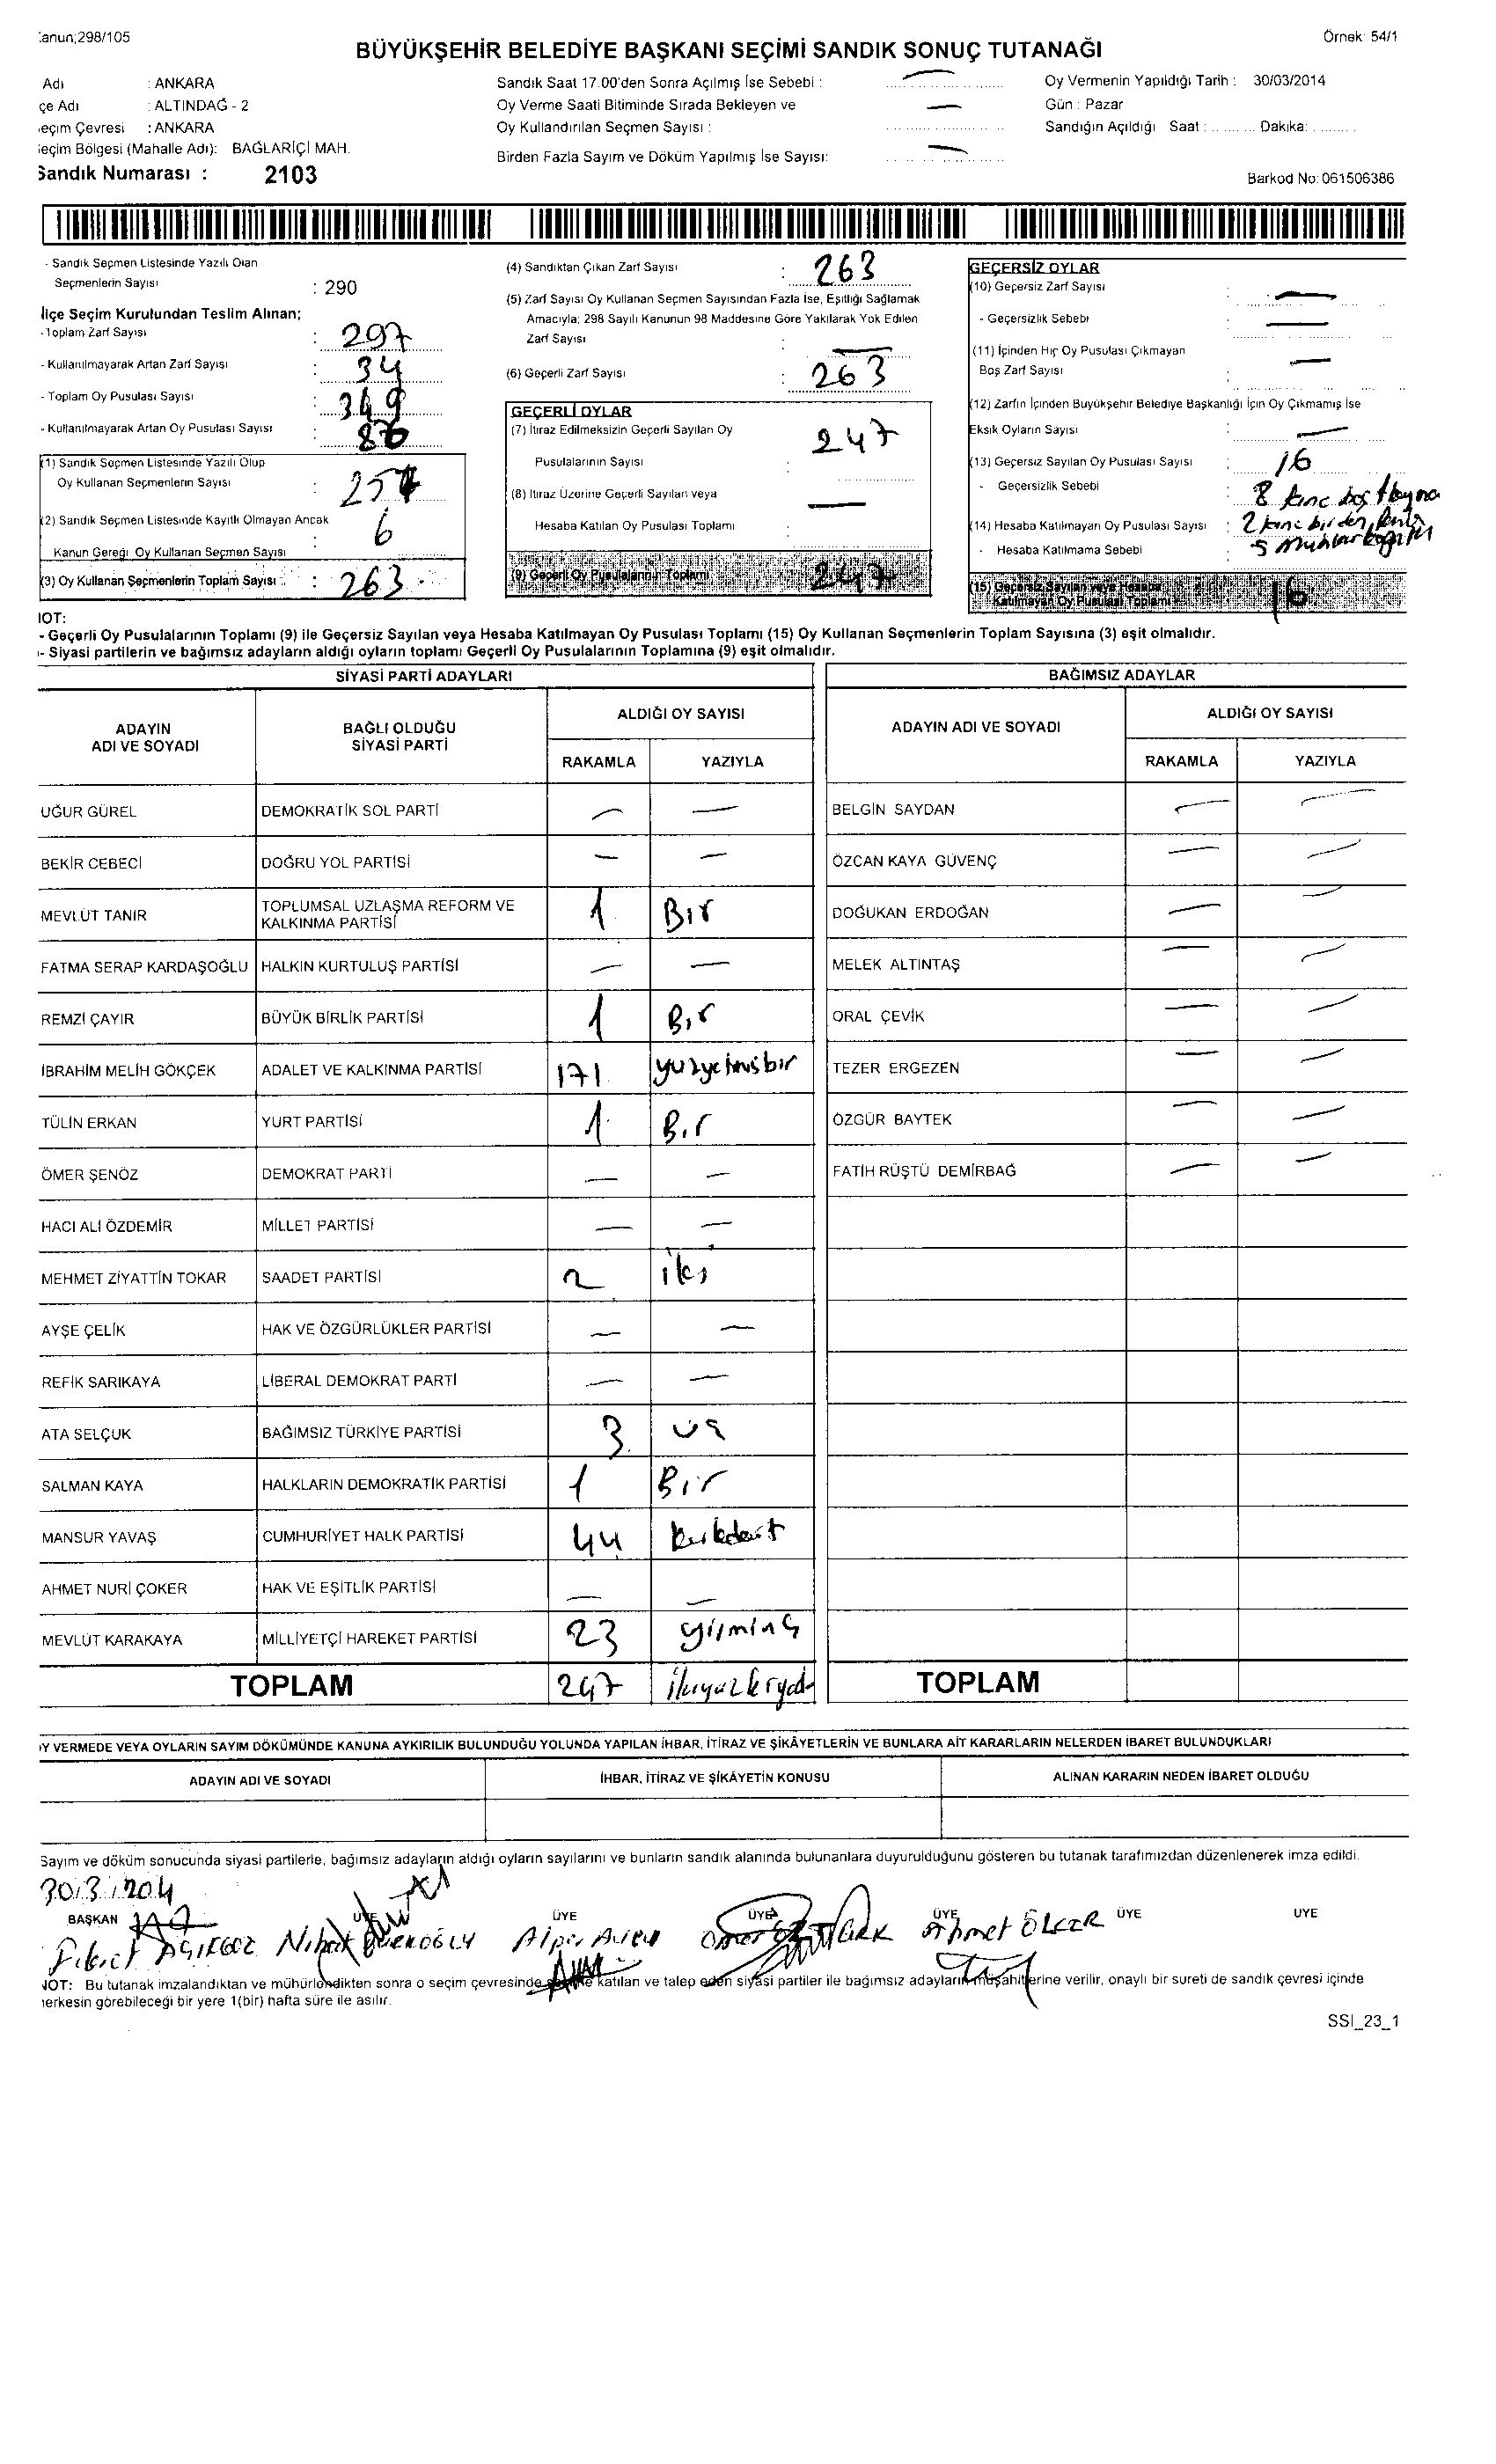 anun;298/105
Örnek: 54/1
BÜYÜKŞEHİR BELEDİYE BAŞKANI SEÇİMİ SANDIK SONUÇ TUTANAĞI
Adı : ANKARA
çe Adı : ALTINDAĞ - 2
eçim Çevresi : ANKARA
eçim Bölgesi (Mahalle Adı): BAĞLARİÇİ MAH.
Sandık Numarası : 2103
Sandık Saat 17.00'den Sonra Açılmış İse Sebebi : —
Oy Verme Saati Bitiminde Sırada Bekleyen ve
Oy Kullandırılan Seçmen Sayısı : —
Birden Fazla Sayım ve Döküm Yapılmış İse Sayısı: —
Oy Vermenin Yapıldığı Tarih : 30/03/2014
Gün : Pazar
Sandığın Açıldığı Saat : ........ Dakika: ........
Barkod No: 061506386
- Sandık Seçmen Listesinde Yazılı Olan
Seçmenlerin Sayısı : 290
İlçe Seçim Kurulundan Teslim Alınan;
- Toplam Zarf Sayısı : 297
- Kullanılmayarak Artan Zarf Sayısı : 34
- Toplam Oy Pusulası Sayısı : 349
- Kullanılmayarak Artan Oy Pusulası Sayısı : 86
(1) Sandık Seçmen Listesinde Yazılı Olup
Oy Kullanan Seçmenlerin Sayısı : 257
(2) Sandık Seçmen Listesinde Kayıtlı Olmayan Ancak
Kanun Gereği Oy Kullanan Seçmen Sayısı : 6
(3) Oy Kullanan Seçmenlerin Toplam Sayısı : 263
(4) Sandıktan Çıkan Zarf Sayısı : 263
(5) Zarf Sayısı Oy Kullanan Seçmen Sayısından Fazla İse, Eşitliği Sağlamak
Amacıyla; 298 Sayılı Kanunun 98 Maddesine Göre Yakılarak Yok Edilen
Zarf Sayısı : —
(6) Geçerli Zarf Sayısı : 263
GEÇERLİ OYLAR
(7) İtiraz Edilmeksizin Geçerli Sayılan Oy
Pusulalarının Sayısı : 247
(8) İtiraz Üzerine Geçerli Sayılan veya
Hesaba Katılan Oy Pusulası Toplamı : —
(9) Geçerli Oy Pusulalarının Toplamı 247
GEÇERSİZ OYLAR
(10) Geçersiz Zarf Sayısı : —
- Geçersizlik Sebebi : —
(11) İçinden Hiç Oy Pusulası Çıkmayan
Boş Zarf Sayısı : —
(12) Zarfın İçinden Büyükşehir Belediye Başkanlığı İçin Oy Çıkmamış İse
Eksik Oyların Sayısı : —
(13) Geçersiz Sayılan Oy Pusulası Sayısı : 16
- Geçersizlik Sebebi : 8 tane boş
(14) Hesaba Katılmayan Oy Pusulası Sayısı : 2 tane birden fazla
- Hesaba Katılmama Sebebi 5 muhtar kağıdı
(15) Geçersiz Sayılan veya Hesaba
Katılmayan Oy Pusulası Toplamı 16
NOT:
- Geçerli Oy Pusulalarının Toplamı (9) ile Geçersiz Sayılan veya Hesaba Katılmayan Oy Pusulası Toplamı (15) Oy Kullanan Seçmenlerin Toplam Sayısına (3) eşit olmalıdır.
- Siyasi partilerin ve bağımsız adayların aldığı oyların toplamı Geçerli Oy Pusulalarının Toplamına (9) eşit olmalıdır.
SİYASİ PARTİ ADAYLARI
ADAYIN ADI VE SOYADI
BAĞLI OLDUĞU SİYASİ PARTİ
ALDIĞI OY SAYISI
RAKAMLA YAZIYLA
UĞUR GÜREL DEMOKRATİK SOL PARTİ — —
BEKİR CEBECİ DOĞRU YOL PARTİSİ — —
MEVLÜT TANIR TOPLUMSAL UZLAŞMA REFORM VE KALKINMA PARTİSİ 1 Bir
FATMA SERAP KARDAŞOĞLU HALKIN KURTULUŞ PARTİSİ — —
REMZİ ÇAYIR BÜYÜK BİRLİK PARTİSİ 1 Bir
İBRAHİM MELİH GÖKÇEK ADALET VE KALKINMA PARTİSİ 171 yüzyetmişbir
TÜLİN ERKAN YURT PARTİSİ 1 Bir
ÖMER ŞENÖZ DEMOKRAT PARTİ — —
HACI ALİ ÖZDEMİR MİLLET PARTİSİ — —
MEHMET ZİYATTİN TOKAR SAADET PARTİSİ 2 iki
AYŞE ÇELİK HAK VE ÖZGÜRLÜKLER PARTİSİ — —
REFİK SARIKAYA LİBERAL DEMOKRAT PARTİ — —
ATA SELÇUK BAĞIMSIZ TÜRKİYE PARTİSİ 3 üç
SALMAN KAYA HALKLARIN DEMOKRATİK PARTİSİ 1 Bir
MANSUR YAVAŞ CUMHURİYET HALK PARTİSİ 44 kırkdört
AHMET NURİ ÇOKER HAK VE EŞİTLİK PARTİSİ — —
MEVLÜT KARAKAYA MİLLİYETÇİ HAREKET PARTİSİ 23 yirmiüç
TOPLAM 247
BAĞIMSIZ ADAYLAR
ADAYIN ADI VE SOYADI
ALDIĞI OY SAYISI
RAKAMLA YAZIYLA
BELGİN SAYDAN — —
ÖZCAN KAYA GÜVENÇ — —
DOĞUKAN ERDOĞAN — —
MELEK ALTINTAŞ — —
ORAL ÇEVİK — —
TEZER ERGEZEN — —
ÖZGÜR BAYTEK — —
FATİH RÜŞTÜ DEMİRBAĞ — —
TOPLAM
Y VERMEDE VEYA OYLARIN SAYIM DÖKÜMÜNDE KANUNA AYKIRILIK BULUNDUĞU YOLUNDA YAPILAN İHBAR, İTİRAZ VE ŞİKÂYETLERİN VE BUNLARA AİT KARARLARIN NELERDEN İBARET BULUNDUKLARI
ADAYIN ADI VE SOYADI İHBAR, İTİRAZ VE ŞİKÂYETİN KONUSU ALINAN KARARIN NEDEN İBARET OLDUĞU
Sayım ve döküm sonucunda siyasi partilerle, bağımsız adayların aldığı oyların sayılarını ve bunların sandık alanında bulunanlara duyurulduğunu gösteren bu tutanak tarafımızdan düzenlenerek imza edildi.
30/3/2014
BAŞKAN ÜYE ÜYE ÜYE ÜYE ÜYE ÜYE
Fikret AÇIKGÖZ Nihat Alper Ömer ÖZTÜRK Ahmet ÖLÇER
NOT: Bu tutanak imzalandıktan ve mühürlendikten sonra o seçim çevresinde seçime katılan ve talep eden siyasi partiler ile bağımsız adayların müşahitlerine verilir, onaylı bir sureti de sandık çevresi içinde
herkesin görebileceği bir yere 1(bir) hafta süre ile asılır.
SSI_23_1